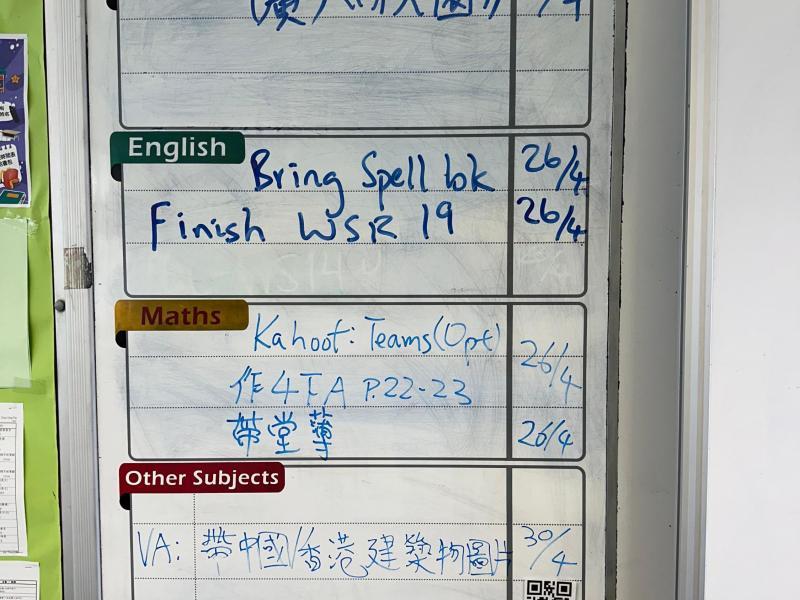 English
Bring Spell bk 26/4
Finish WSR 19 26/4
Maths
Kahoot: Teams(Opt)
26/4
作4下A P.22-23
帶堂簿 26/4
Other Subjects
VA: 帶中國/香港建築物圖片 30/4